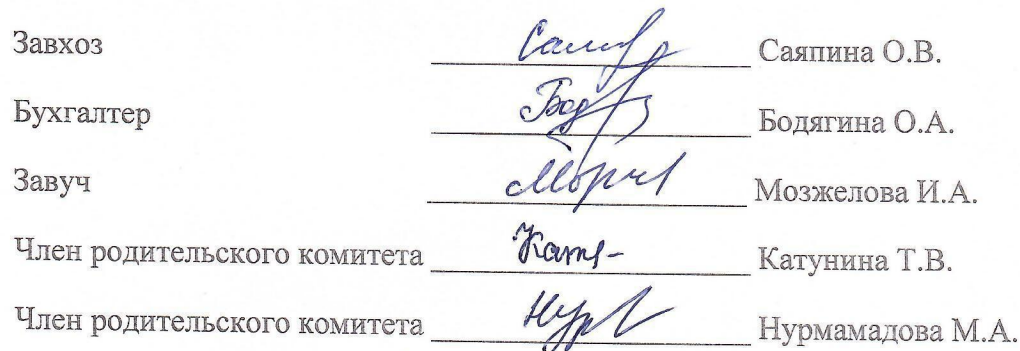 Завхоз Саяпина О.В.
Бухгалтер Бодягина О.А.
Завуч Мозжелова И.А.
Член родительского комитета Катунина Т.В.
Член родительского комитета Нурмамадова М.А.